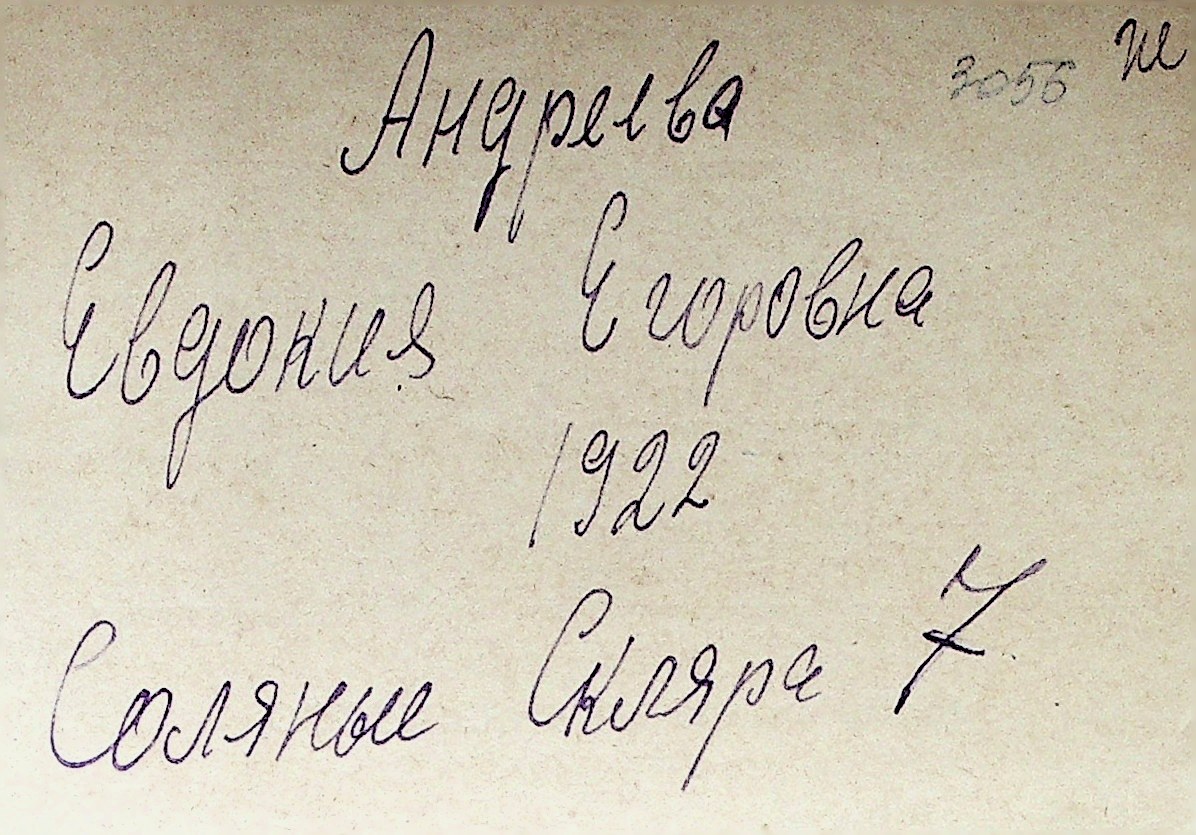 3056 ж
Андреева
Евдокия Егоровна
1922
Соляные Скляра 7